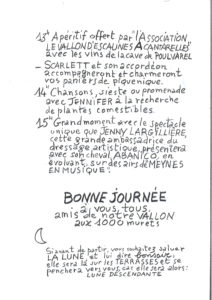 13h Apéritif offert par l'ASSOCIATION
LE VALLON D'ESCAUNES À CANTARELLES
avec les vins de la cave de POULVAREL
- SCARLETT et son accordéon
accompagneront et charmeront
vos paniers de piquenique.
14h Chansons, sieste ou promenade
avec JENNIFER à la recherche
de plantes comestibles.
15h Grand moment avec le spectacle
unique que JENNY LARGILLIÈRE,
cette grande ambassadrice du
dressage artistique, présentera
avec son cheval ABANICO, en
évoluant sur des airs de MEYNES
EN MUSIQUE !
BONNE JOURNÉE
à vous, tous
amis de notre VALLON
aux 1000 murets
Si avant de partir, vous souhaitez saluer
LA LUNE et lui dire bonjour,
elle sera là sur les TERRASSES et se
penchera vers vous car elle sera alors :
LUNE DESCENDANTE